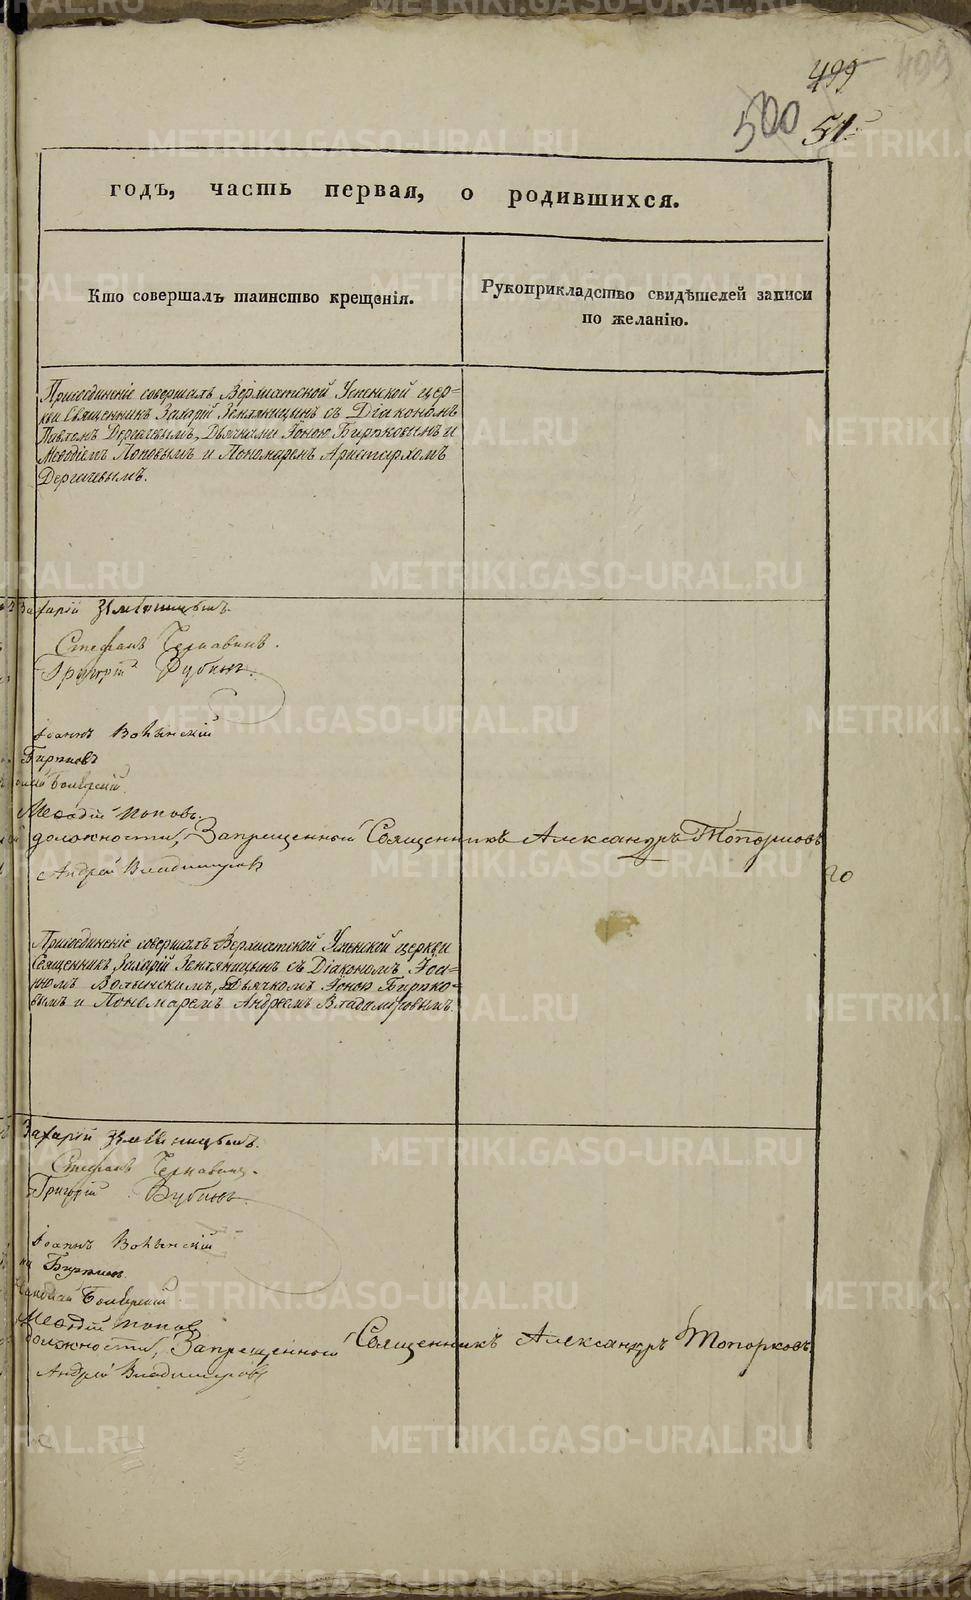 499
499
500
51
годъ, часть первая, о родившихся.
Кто совершалъ таинство крещенія.
Рукоприкладство свидѣтелей записи
по желанію.
Присоединеніе совершалъ Верхиатской Успенской цер=
кви Священникъ Захарій Земляницынъ съ Діакономъ
Павломъ Дергачевымъ, Дьячками Іоною Бирюковымъ и
Меѳодіемъ Поповымъ и Пономаремъ Аристархомъ
Дергачевымъ.
Захарій Земляницынъ.
Стефанъ Чернавинъ.
Григорій Рубинъ.
Іоаннъ Волынскій
Бирюковъ
Меѳодій Поповъ.
должности, Запрещенный Священникъ Александръ Топорковъ
Андрей Владимировъ
20
Присоединеніе совершалъ Верхиатской Успенской церкви
Священникъ Захарій Земляницынъ съ Діакономъ Іоан=
номъ Волынскимъ, Дьячкомъ Іоною Бирюко=
вымъ и Пономаремъ Андреемъ Владимировымъ.
Захарій Земляницынъ.
Стефанъ Чернавинъ.
Григорій Рубинъ.
Іоаннъ Волынскій
Бирюковъ.
Меѳодій Поповъ
должности, Запрещенный Священникъ Александръ Топорковъ
Андрей Владимировъ
METRIKI.GASO-URAL.RU